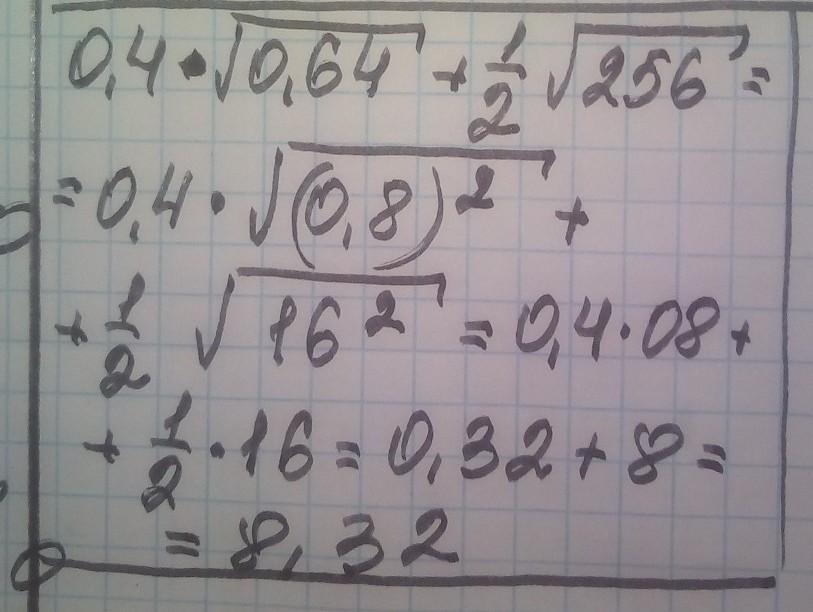 0,4 • √0,64 + 1/2 √256 =
= 0,4 · √(0,8)² +
+ 1/2 √16² = 0,4 · 08 +
+ 1/2 · 16 = 0,32 + 8 =
= 8,32